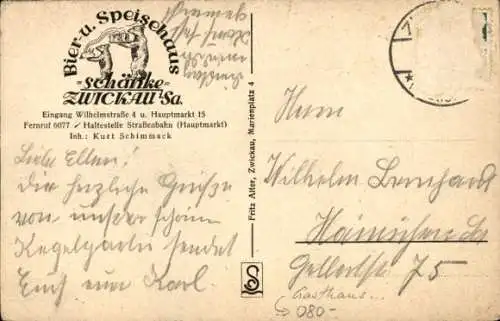 Bier- u. Speisehaus
-schänke-
ZWICKAU i. Sa.
Eingang Wilhelmstraße 4 u. Hauptmarkt 15
Fernruf 6677 ✓ Haltestelle Straßenbahn (Hauptmarkt)
Inh.: Kurt Schimmack
Liebe Eltern!
Die herzliche Grüße
von unserer schönen
Kegelpartie sendet
Euch euer Karl.
Fritz Alter, Zwickau, Marienplatz 4
Herrn
Wilhelm Lenhardt
Hainichen Sa
Gellertstr 75
Gasthaus...
080-